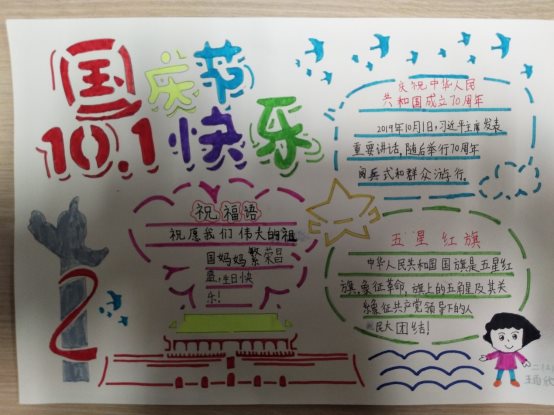 国庆节
10.1快乐
庆祝中华人民
共和国成立70周年
2019年10月1日,习近平主席发表
重要讲话,随后举行70周年
阅兵式和群众游行。
祝福语
祝愿我们伟大的祖
国妈妈繁荣昌
盛,生日快
乐!
五星红旗
中华人民共和国国旗是五星红
旗,象征革命,旗上的五角星及其关
系象征共产党领导下的人
民大团结!